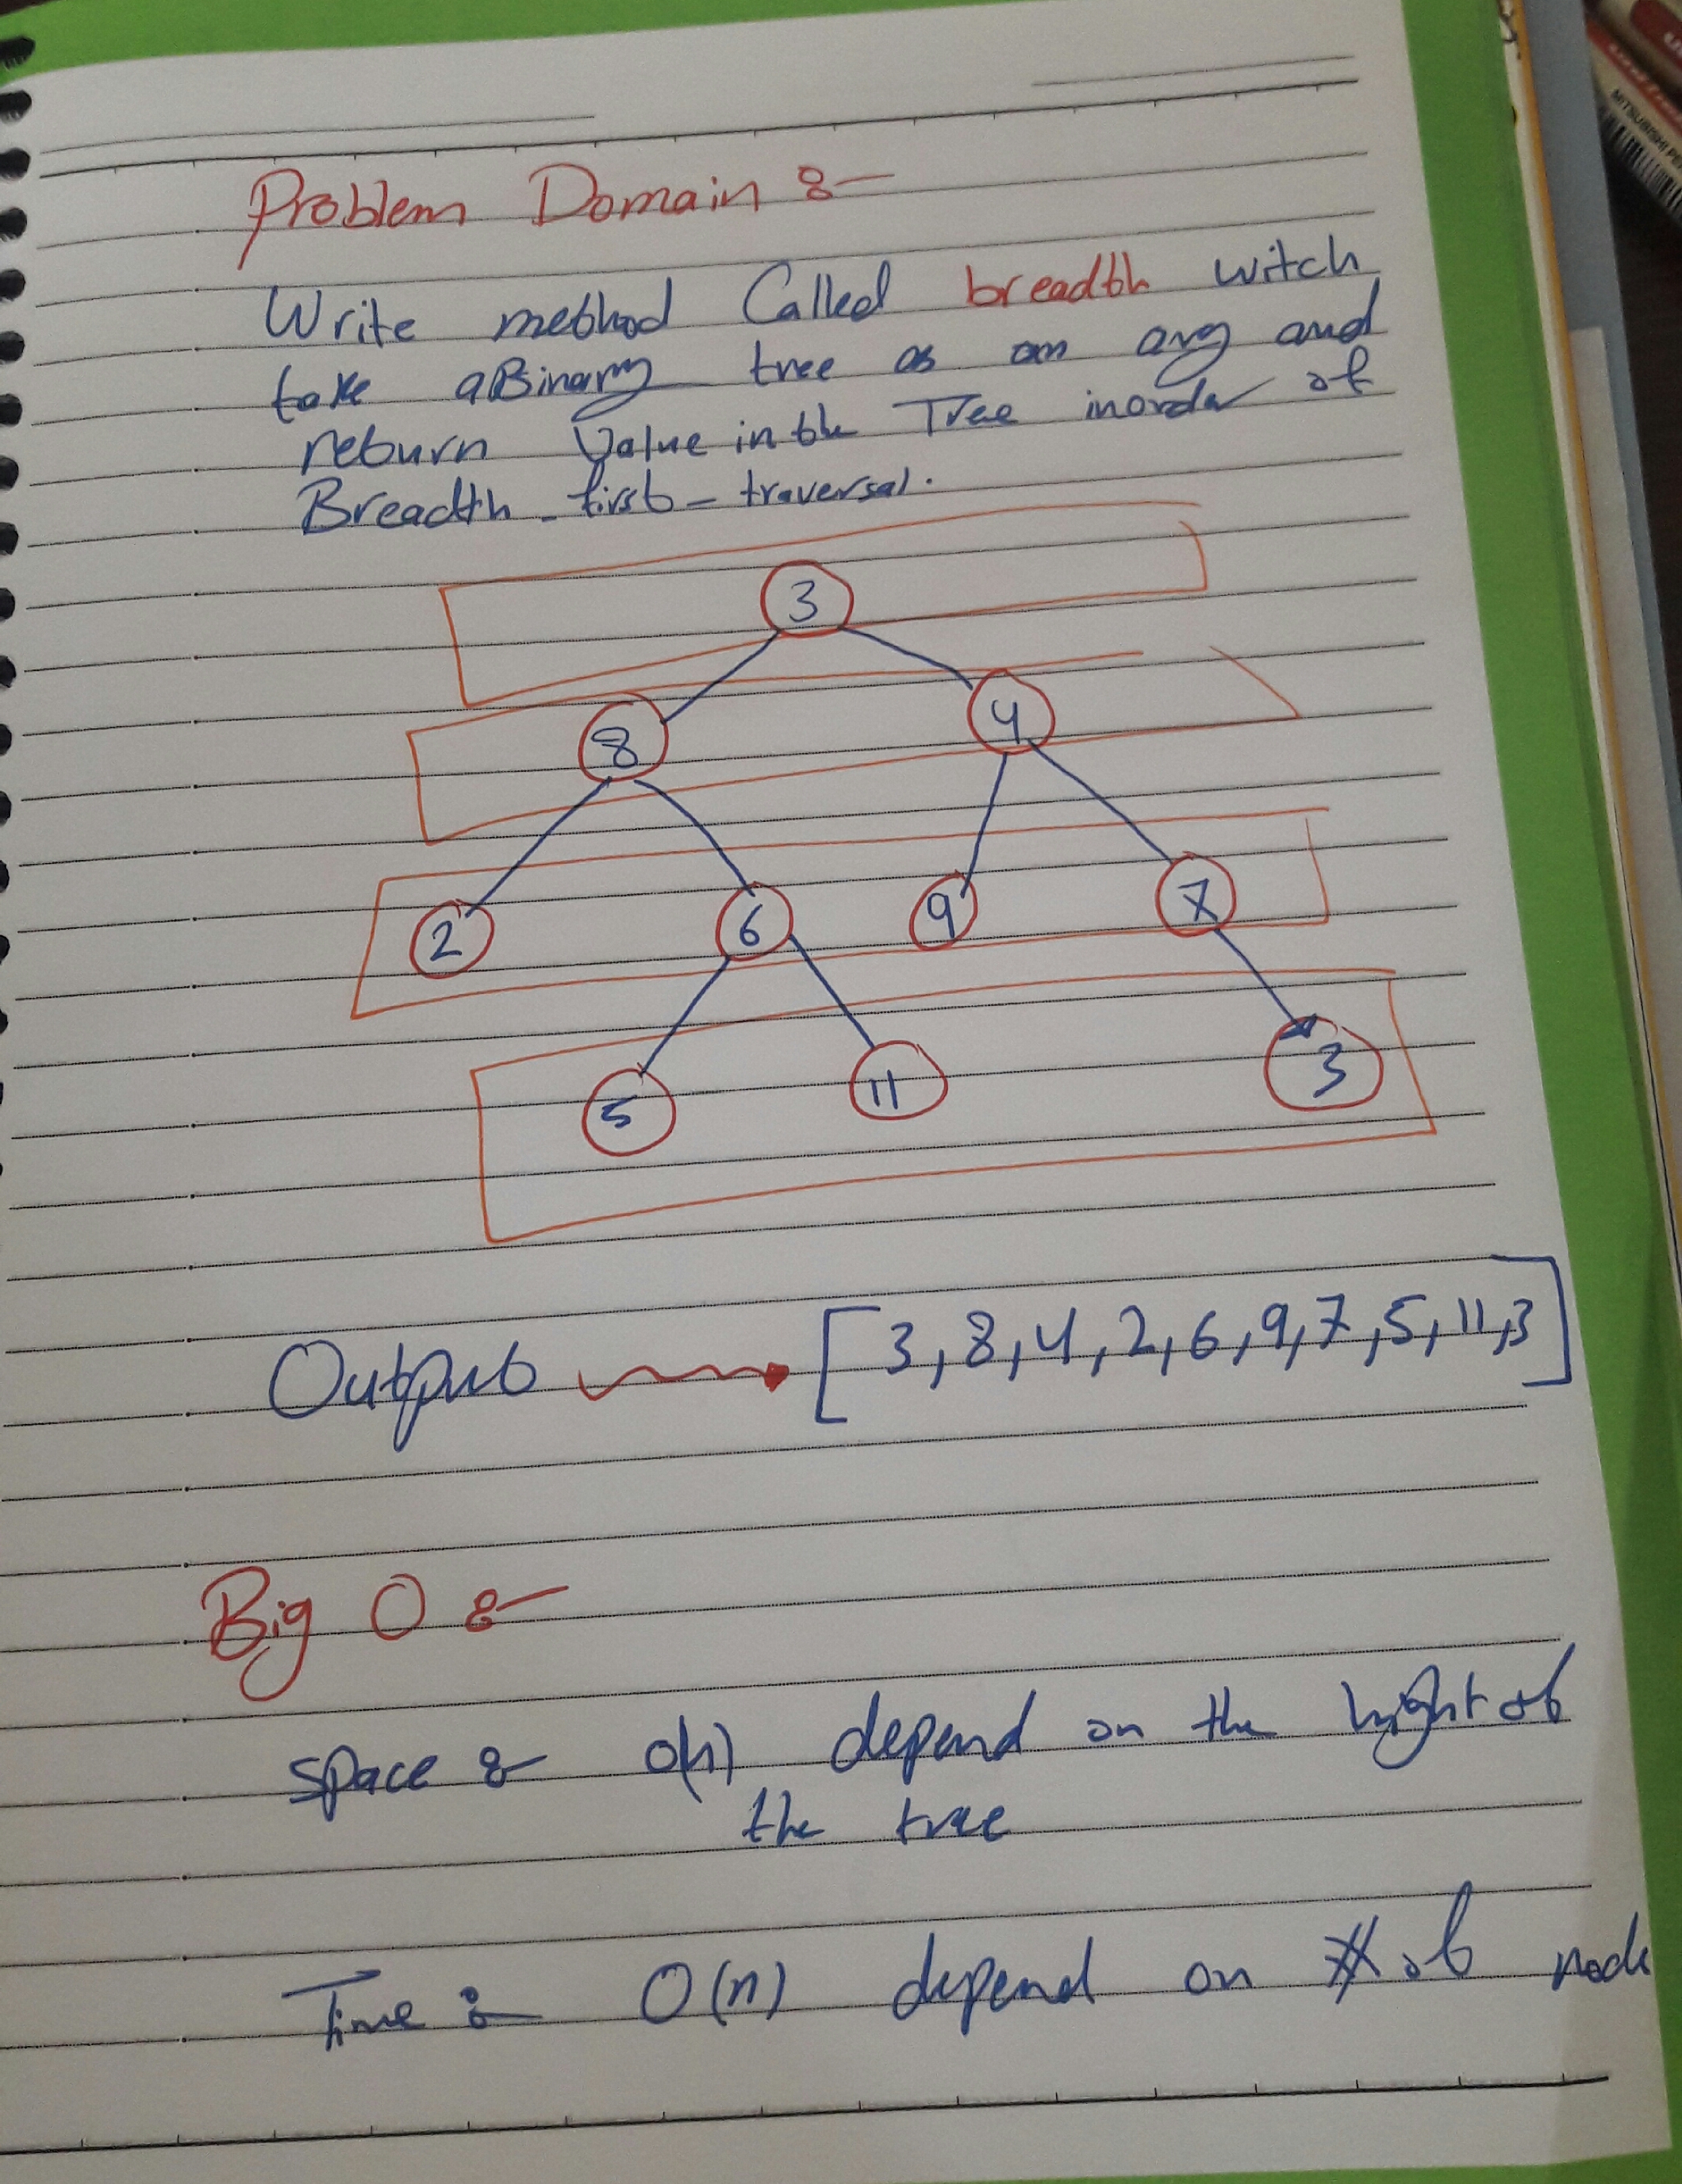 Problem Domain :-
Write method Called breadth witch
take a Binary tree as an arg and
return Value in the Tree inorder of
Breadth - first - traversal.
3
8 4
2 6 9 7
5 11 3
Output [3,8,4,2,6,9,7,5,11,3]
Big O :-
Space :- O(h) depend on the hight of
the tree
Time :- O(n) depend on # of node
MITSUBISHI PE